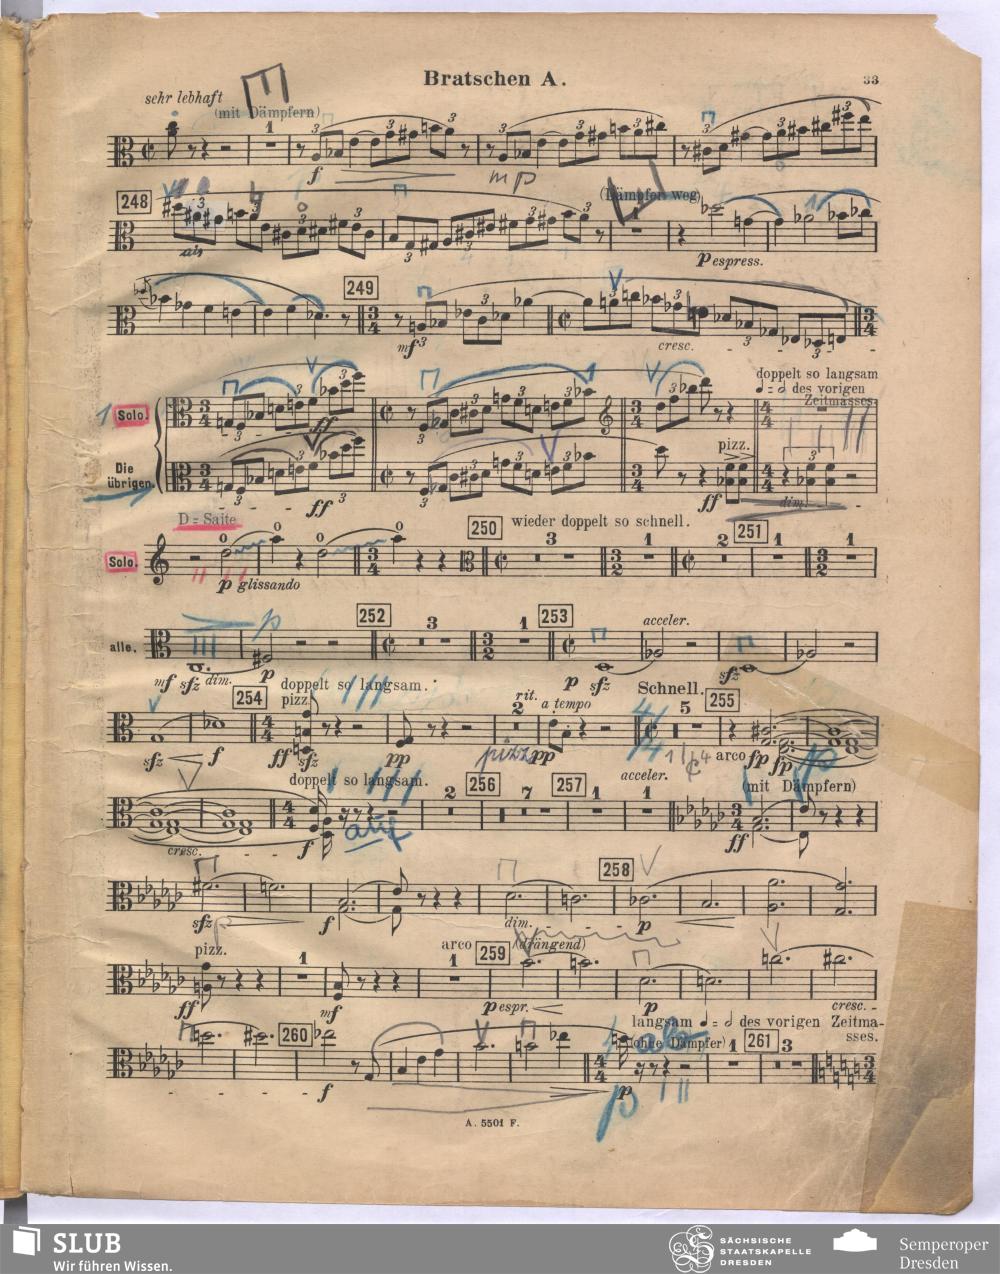 Bratschen A.
33
sehr lebhaft
(mit Dämpfern)
1
f
mp
248
(Dämpfer weg)
1
p espress.
249
mf
cresc.
1 Solo.
doppelt so langsam
= des vorigen
Zeitmasses.
Die
übrigen.
ff
ff
pizz.
ff
dim.
D = Saite
250
wieder doppelt so schnell.
251
Solo.
p glissando
3
1
2
1
1
252
253
acceler.
alle.
3
1
mf sfz dim.
p
p
sfz
sfz
p
254
doppelt so langsam.
pizz.
rit.
a tempo
Schnell.
255
2
5
sfz
f
ff sfz
pp
pizz
pp
arco
fp
fp
p
doppelt so langsam.
256
257
acceler.
(mit Dämpfern)
2
7
1
1
cresc.
f
auf
ff
258
sfz
f
dim.
p
pizz.
arco
259
(drängend)
1
1
ff
mf
p espr.
p
cresc.
260
langsam = des vorigen Zeitma-
sses.
(ohne Dämpfer)
1
261
3
f
p
A. 5501 F.
SLUB
Wir führen Wissen.
SÄCHSISCHE
STAATSKAPELLE
DRESDEN
Semperoper
Dresden